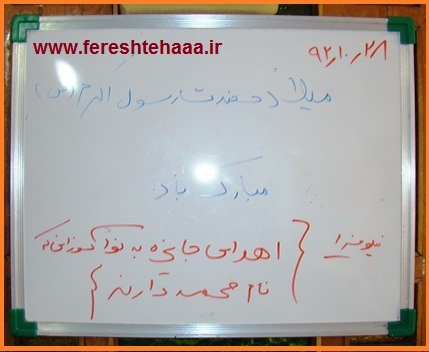 www.fereshtehaaa.ir
۹۲,۱۰,۲۸
میلاد حضرت رسول اکرم (ص)
مبارک باد
اهدای جایزه به نوآموزانی که
نام محمد دارند